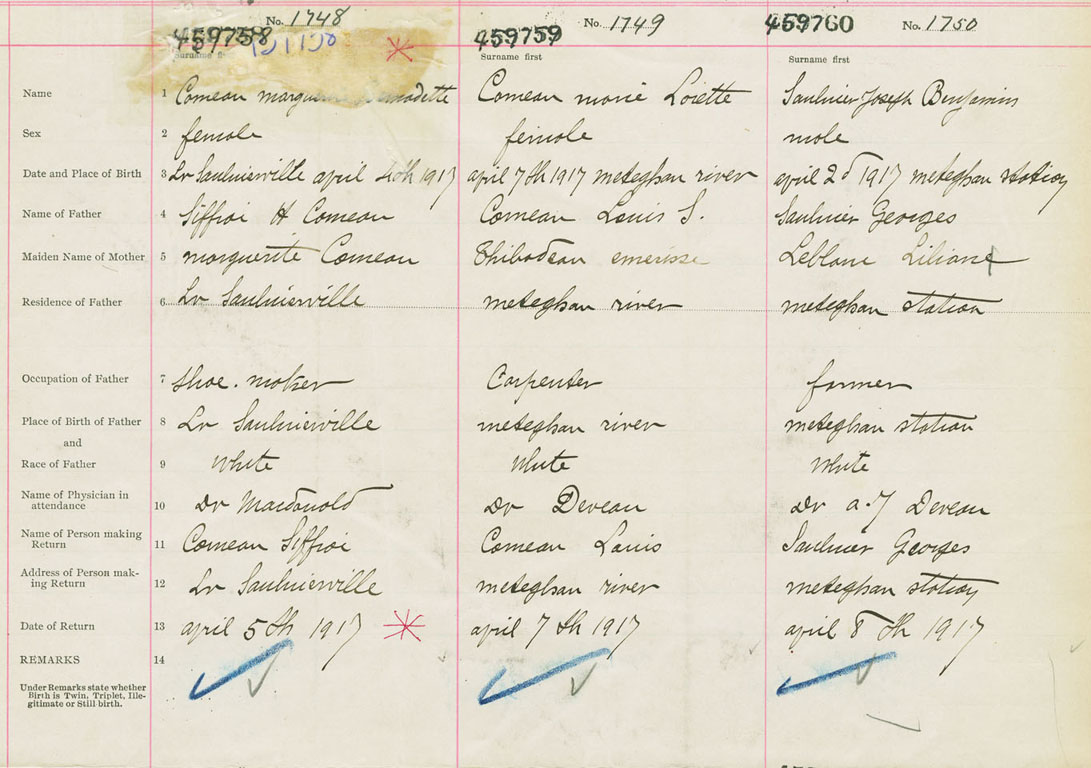 No. 1748 No. 1749 No. 1750
459758 459759 459760
Surname first Surname first Surname first
Name 1 Comeau Bernadette Comeau marie Loiette Saulnier Joseph Benjamin
Sex 2 female female male
Date and Place of Birth 3 Lr Saulnierville april 4th 1917 april 7th 1917 meteghan river april 2d 1917 meteghan station
Name of Father 4 Siffroi H Comeau Comeau Louis S. Saulnier Georges
Maiden Name of Mother 5 marguerite Comeau Thibodeau emerisse Leblanc Liliane
Residence of Father 6 Lr Saulnierville meteghan river meteghan station
Occupation of Father 7 shoe. maker Carpenter farmer
Place of Birth of Father 8 Lr Saulnierville meteghan river meteghan station
and
Race of Father 9 White White White
Name of Physician in
attendance 10 Dr Macdonald Dr Deveau Dr a. J Deveau
Name of Person making
Return 11 Comeau Siffroi Comeau Louis Saulnier Georges
Address of Person mak-
ing Return 12 Lr Saulnierville meteghan river meteghan station
Date of Return 13 april 5th 1917 april 7th 1917 april 8th 1917
REMARKS 14
Under Remarks state whether
Birth is Twin, Triplet, Ille-
gitimate or Still birth.